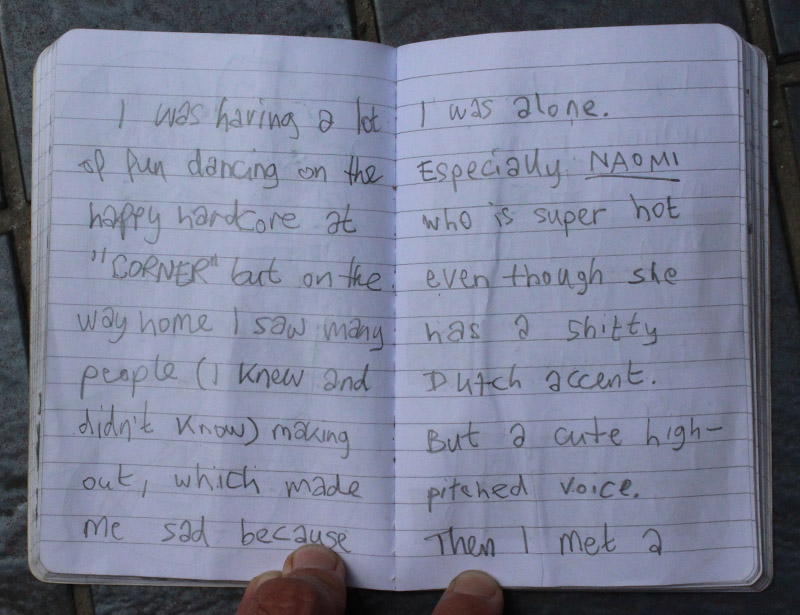 I was having a lot
of fun dancing on the
happy hardcore at
"CORNER" but on the
way home I saw many
people (I knew and
didn't know) making
out, which made
me sad because
I was alone.
Especially NAOMI
who is super hot
even though she
has a shitty
Dutch accent.
But a cute high-
pitched voice.
Then I met a